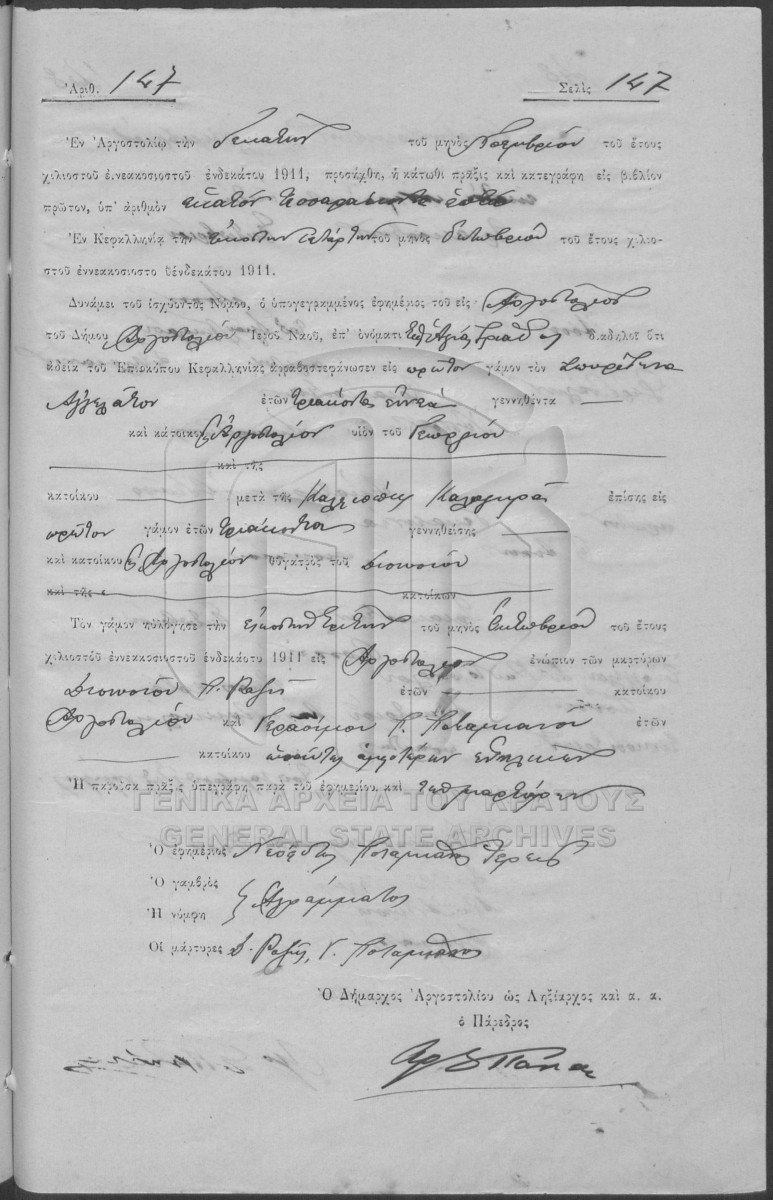 Ἀριθ. 147 Σελὶς 147
Ἐν Ἀργοστολίῳ τὴν δεκάτην τοῦ μηνὸς Νοεμβρίου τοῦ ἔτους
χιλιοστοῦ ἐννεακοσιοστοῦ ἑνδεκάτου 1911, προσήχθη, ἡ κάτωθι πρᾶξις καὶ κατεγράφη εἰς βιβλίον
πρῶτον, ὑπ' ἀριθμὸν ἑκατὸν τεσσαράκοντα ἑπτὰ
Ἐν Κεφαλληνίᾳ τὴν εἰκοστὴν τετάρτην τοῦ μηνὸς Ὀκτωβρίου τοῦ ἔτους χιλιο-
στοῦ ἐννεακοσιοστο θἑνδεκάτου 1911.
Δυνάμει τοῦ ἰσχύοντὸς Νόμου, ὁ ὑπογεγραμμένος ἐφημέριος τοῦ εἰς Ἀργοστόλιον
τοῦ Δήμου Ἀργοστολίου Ἱεροῦ Ναοῦ, ἐπ' ὀνόματι Τριάδος διαδηλοῖ ὅτι
ἀδείᾳ τοῦ Ἐπισκόπου Κεφαλληνίας ἀρραβοστεφάνωσεν εἰς πρῶτον γάμον τὸν Σπυρίδωνα
Ἀγγελᾶτον ἐτῶν τριάκοντα ἐννέα γεννηθέντα
καὶ κάτοικον Ἀργοστολίου υἱὸν τοῦ Γεωργίου
καὶ τῆς
κατοίκου μετὰ τῆς Καλλιόπης Καλογηρᾶ ἐπίσης εἰς
πρῶτον γάμον ἐτῶν τριάκοντα γεννηθείσης
καὶ κατοίκου Ἀργοστολίου θυγατρὸς τοῦ Διονυσίου
καὶ τῆς κατοίκων
Τὸν γάμον ηὐλόγησε τὴν εἰκοστὴν τρίτην τοῦ μηνὸς Ὀκτωβρίου τοῦ ἔτους
χιλιοστοῦ ἐννεακοσιοστοῦ ἑνδεκάτου 1911 εἰς Ἀργοστόλιον ἐνώπιον τῶν μαρτύρων
Διονυσίου Π. Ραζῆ ἐτῶν κατοίκου
Ἀργοστολίου καὶ Γερασίμου Γ. Ποταμιάνου ἐτῶν
κατοίκου ἀμφοτέρων ἐνηλίκων
Ἡ παροῦσα πρᾶξις ὑπεγράφη παρὰ τοῦ ἐφημερίου καὶ τῶν μαρτύρων
ΓΕΝΙΚΑ ΑΡΧΕΙΑ ΤΟΥ ΚΡΑΤΟΥΣ
GENERAL STATE ARCHIVES
Ὁ ἐφημέριος Ποταμιάνος Ἱερεὺς
Ὁ γαμβρὸς
Ἡ νύμφη Ἀγράμματος
Οἱ μάρτυρες Δ. Ραζῆς, Γ. Ποταμιάνος
Ὁ Δήμαρχος Ἀργοστολίου ὡς Ληξίαρχος καὶ α. α.
ὁ Πάρεδρος